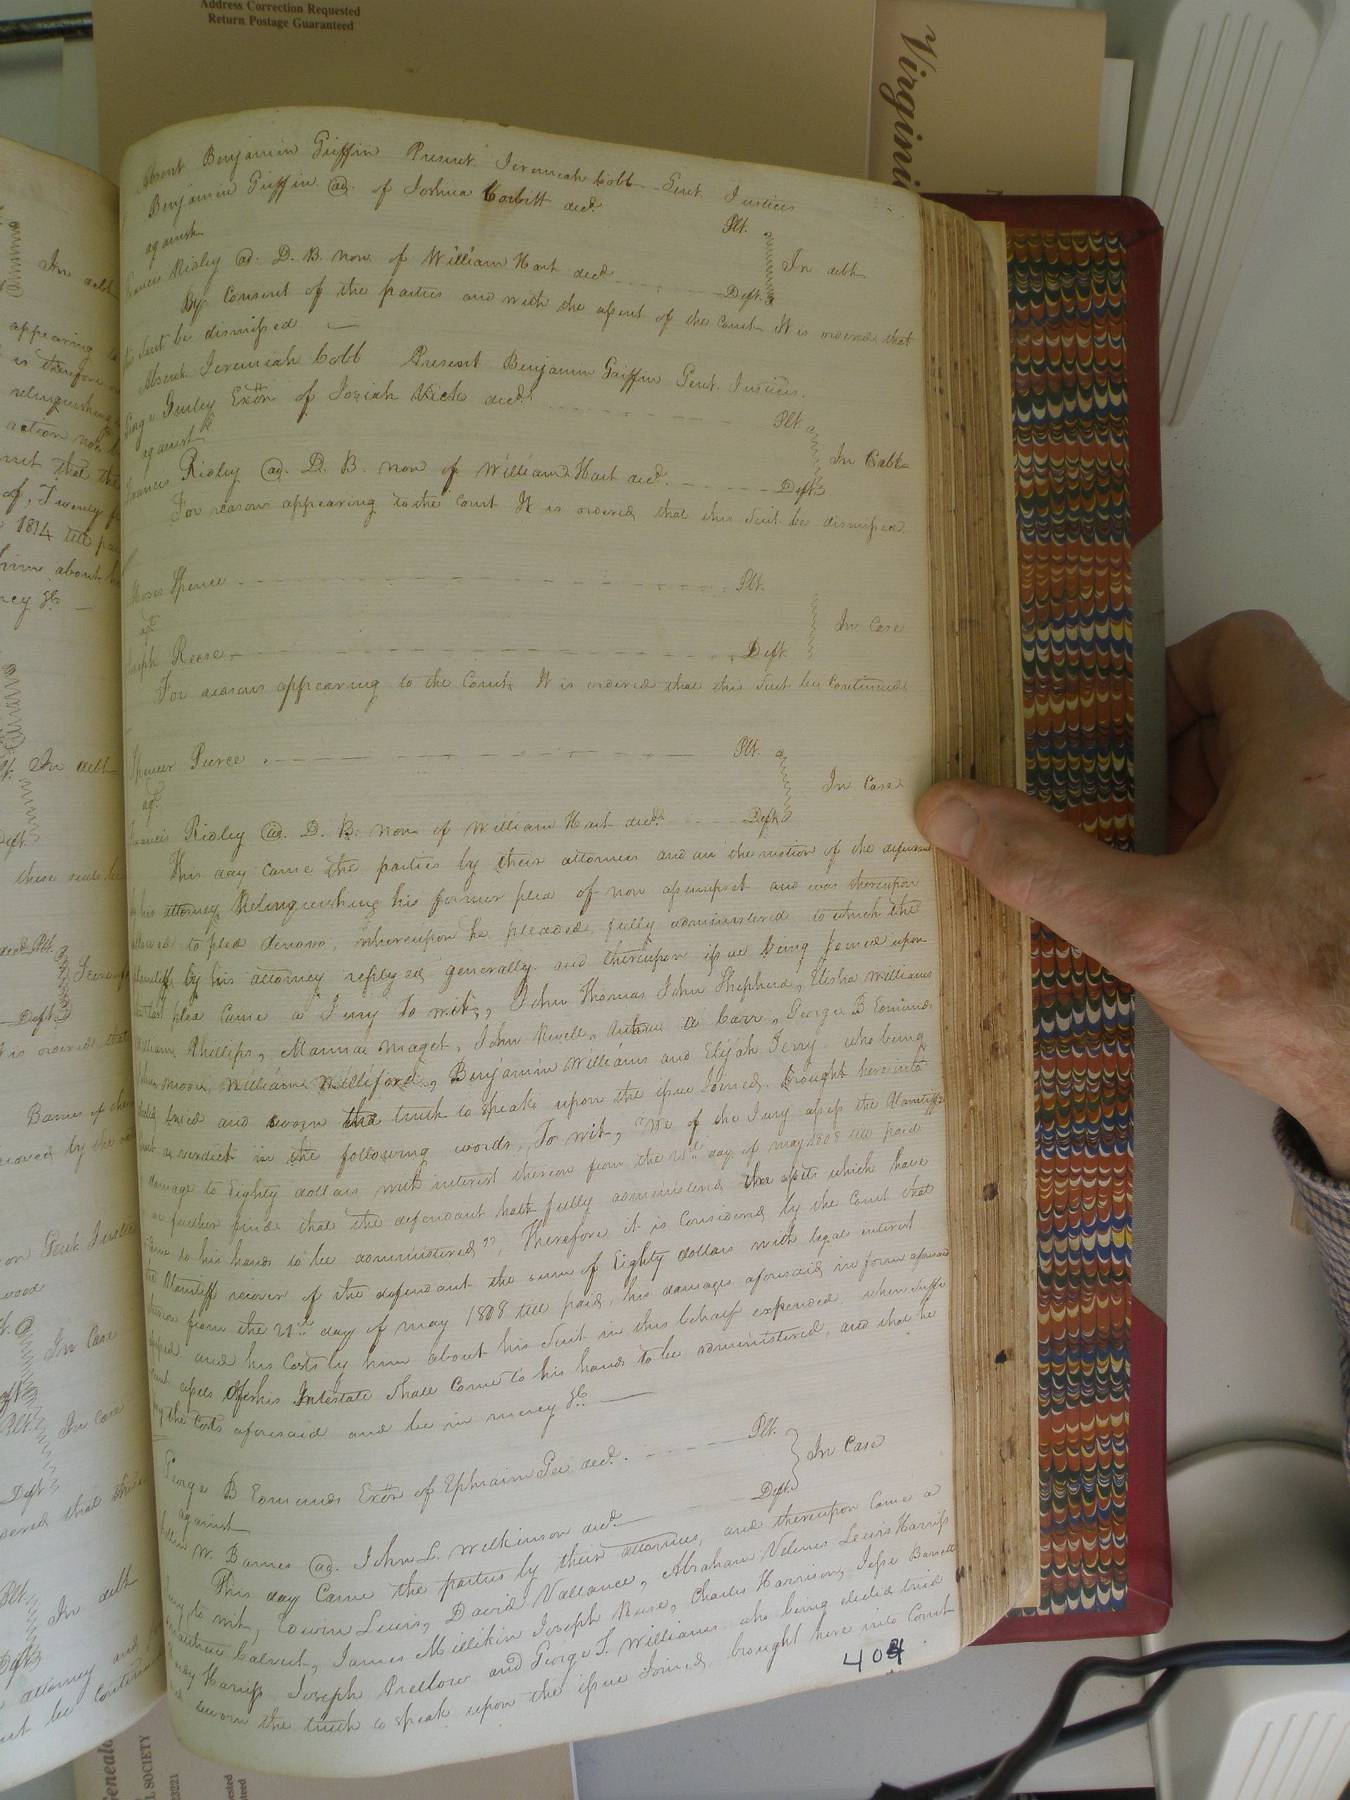 Address Correction Requested
Return Postage Guaranteed
Virgini
Absent Benjamin Griffin Present Jeremiah Cobb Gent. Justices
Benjamin Griffin ad. of Joshua Corbitt decd. Plt.
against
In debt
Francis Ridley ad. D. B. non of William Hart decd. Deft.
By Consent of the parties and with the assent of the Court It is ordered that
this Suit be dismissed
Absent Jeremiah Cobb Present Benjamin Griffin Gent. Justices.
Gurley Exor. of Josiah Vick decd. Plt.
against
In Case
Francis Ridley ad. D. B. non of William Hart decd. Deft.
For reasons appearing to the Court It is ordered that this Suit be dismissed
Moses Spence Plt.
agt.
In Case
Joseph Reese Deft.
For reasons appearing to the Court, It is ordered that this Suit be Continued
Spencer Pierce Plt.
agt.
In Case
Francis Ridley ad. D. B. non of William Hart decd. Deft.
This day came the parties by their attornies and on the motion of the defendant
by his attorney Relinquishing his former plea of non assumpsit and was thereupon
allowed to plead denovo, whereupon he pleaded fully administered to which the
plaintiff by his attorney replyed generally and thereupon issue being Joined upon
plea Came a Jury To wit, John Thomas John Shepherd, Elisha Williams
William Phillips, Mannae Maget, John Newell, Carr, George B Edmunds
Moore, William Williford, Benjamin Williams and Elijah Ferry who being
elected tried and sworn the truth to speak upon the issue Joined. brought here into
Court a verdict in the following words, To wit, "We of the Jury assess the Plaintiffs
damage to Eighty dollars with interest thereon from the 21st day of may 1808 till paid
we further find that the defendant hath fully administered the assets which have
Come to his hands to be administered", Therefore it is Considered by the Court that
the Plaintiff recover of the defendant the sum of Eighty dollars with legal interest
thereon from the 21st day of may 1808 till paid, his damages aforesaid in form aforesaid
assessed and his Costs by him about his Suit in this behalf expended. when suffi-
cient assets of his Intestate shall Come to his hands to be administered, and that he
pay the Costs aforesaid and be in mercy &c.
George B Edmunds Exor. of Ephraim Gee decd. Plt.
against
In Case
W. Barnes ad. John L. Wilkinson decd. Deft.
This day Came the parties by their attornies, and thereupon Came a
Jury, to wit, Edwin Lewis, David Vallance, Abraham Lewis Harriss
Calvert, James Millikin Joseph Rese, Charles Harrison, Jesse Barrett
Harriss Joseph Prellow and George T. Williams who being elected tried
and sworn the truth to speak upon the issue Joined, brought here into Court
404
In debt
appearing
is therefore
relinquishing
action
that the
of, Twenty
1814 till
him about
mercy &c
In debt
Deft
these suits
decd Plt.
Deft.
Barnes
by the
Gent
In Case
In Case
Deft
ordered that
Plt.
In debt
attorney and
be continued
Geneal
L SOCIETY
23221